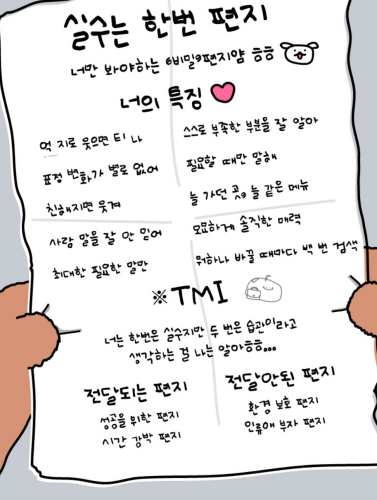 실수는 한번 편지
너만 봐야하는 비밀편지얌 흐흐
너의 특징
억 지로 웃으면 티 나
표정 변화가 별로 없어
친해지면 웃겨
사람 말을 잘 안 믿어
최대한 필요한 말만
스스로 부족한 부분을 잘 알아
필요할 때만 말해
늘 가던 곳, 늘 같은 메뉴
묘하게 솔직한 매력
뭐하나 바꿀 때마다 백 번 검색
※TMI
너는 한번은 실수지만 두 번은 습관이라고
생각하는 걸 나는 알아흐흐...
전달되는 편지
성공을 위한 편지
시간 강박 편지
전달안된 편지
환경 보호 편지
인류애 부자 편지